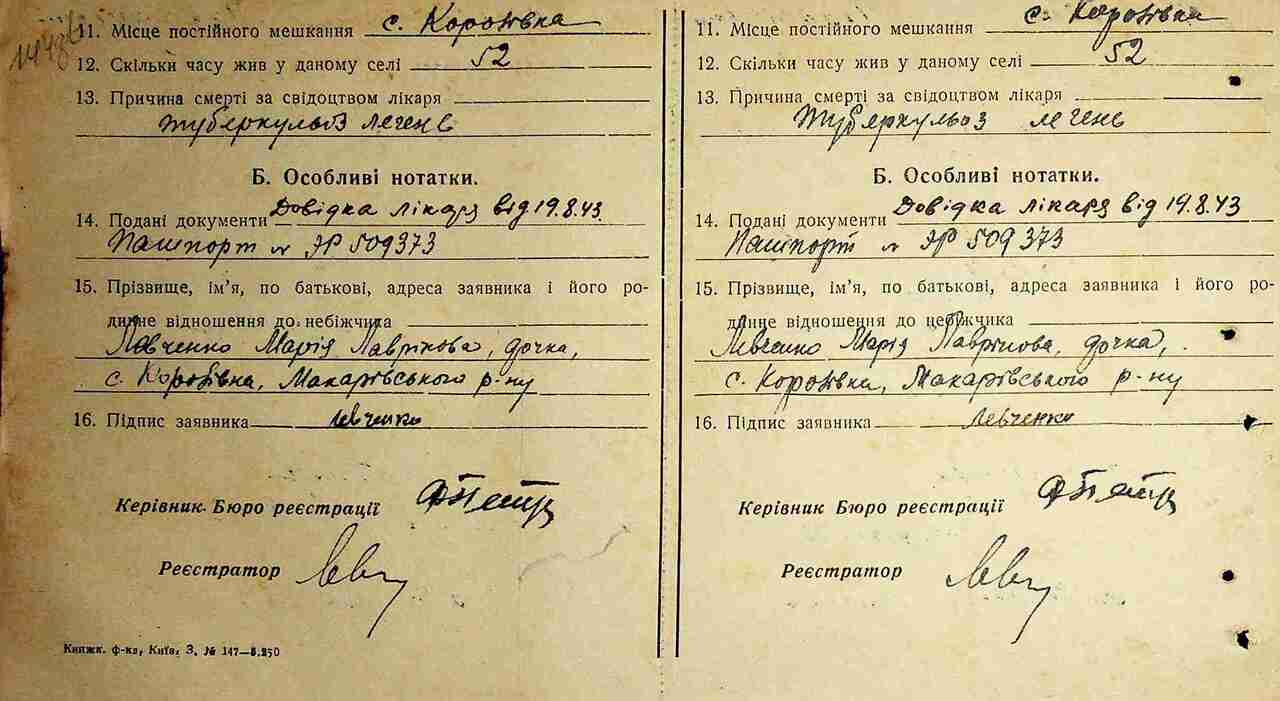 11. Місце постійного мешкання с. Королівка
12. Скільки часу жив у даному селі 52
13. Причина смерті за свідоцтвом лікаря
туберкульоз легень
Б. Особливі нотатки.
14. Подані документи Довідка лікаря від 19.8.43
Пашпорт № ЭР 509373
15. Прізвище, ім’я, по батькові, адреса заявника і його ро-
динне відношення до небіжчика
Левченко Марія Лаврінова, дочка,
с. Королівка, Макарівського р-ну
16. Підпис заявника Левченко
Керівник Бюро реєстрації
Реєстратор
Книжк. ф-ка, Київ, З. № 147—8.250
11. Місце постійного мешкання с. Королівка
12. Скільки часу жив у даному селі 52
13. Причина смерті за свідоцтвом лікаря
Туберкульоз легень
Б. Особливі нотатки.
14. Подані документи Довідка лікаря від 19.8.43
Пашпорт № ЭР 509373
15. Прізвище, ім’я, по батькові, адреса заявника і його ро-
динне відношення до небіжчика
Левченко Марія Лаврінова, дочка,
с. Королівка, Макарівського р-ну
16. Підпис заявника Левченко
Керівник Бюро реєстрації
Реєстратор